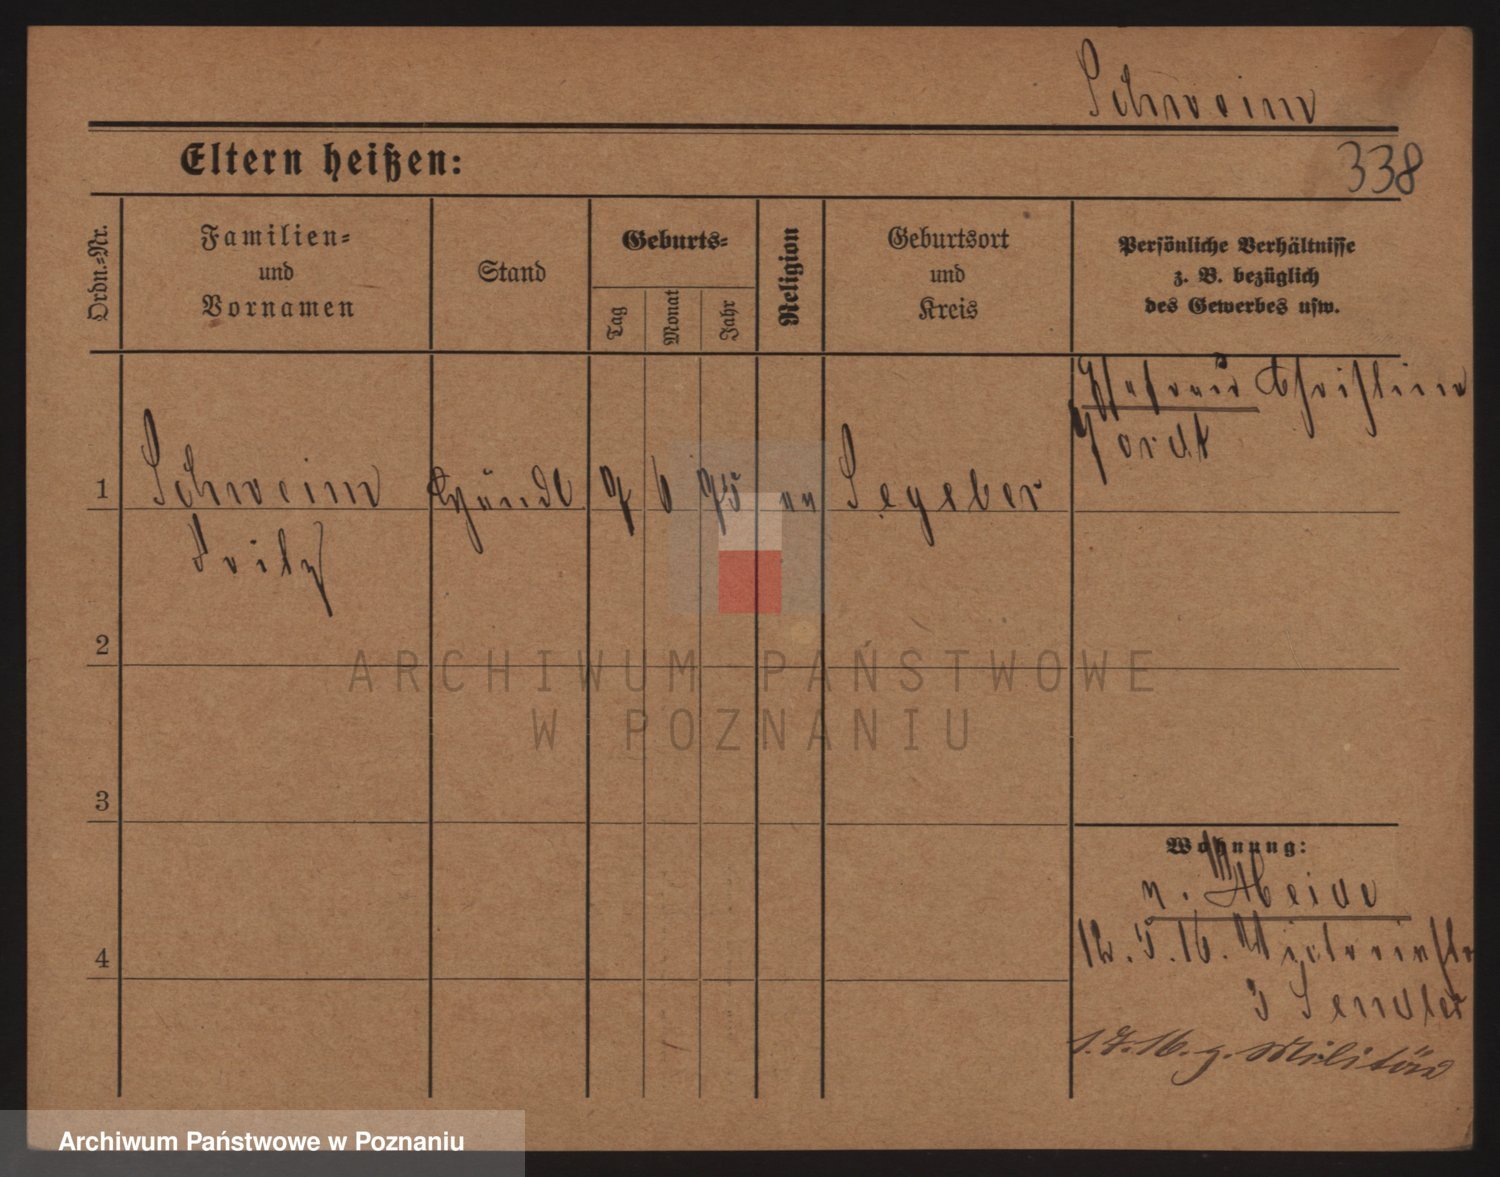 Schwein
Eltern heißen:
338
Ordn.=Nr.
Familien=
und
Vornamen
Stand
Geburts=
Tag
Monat
Jahr
Religion
Geburtsort
und
Kreis
Persönliche Verhältnisse
z. B. bezüglich
des Gewerbes usw.
Christine
1
Schwein
7 6 75
Segeber
Fritz
2
ARCHIWUM PAŃSTWOWE
W POZNANIU
3
Wohnung:
n. Heide
4
12. 5. 16.
3 Sendler
1. 7. 16. z. Militär
Archiwum Państwowe w Poznaniu